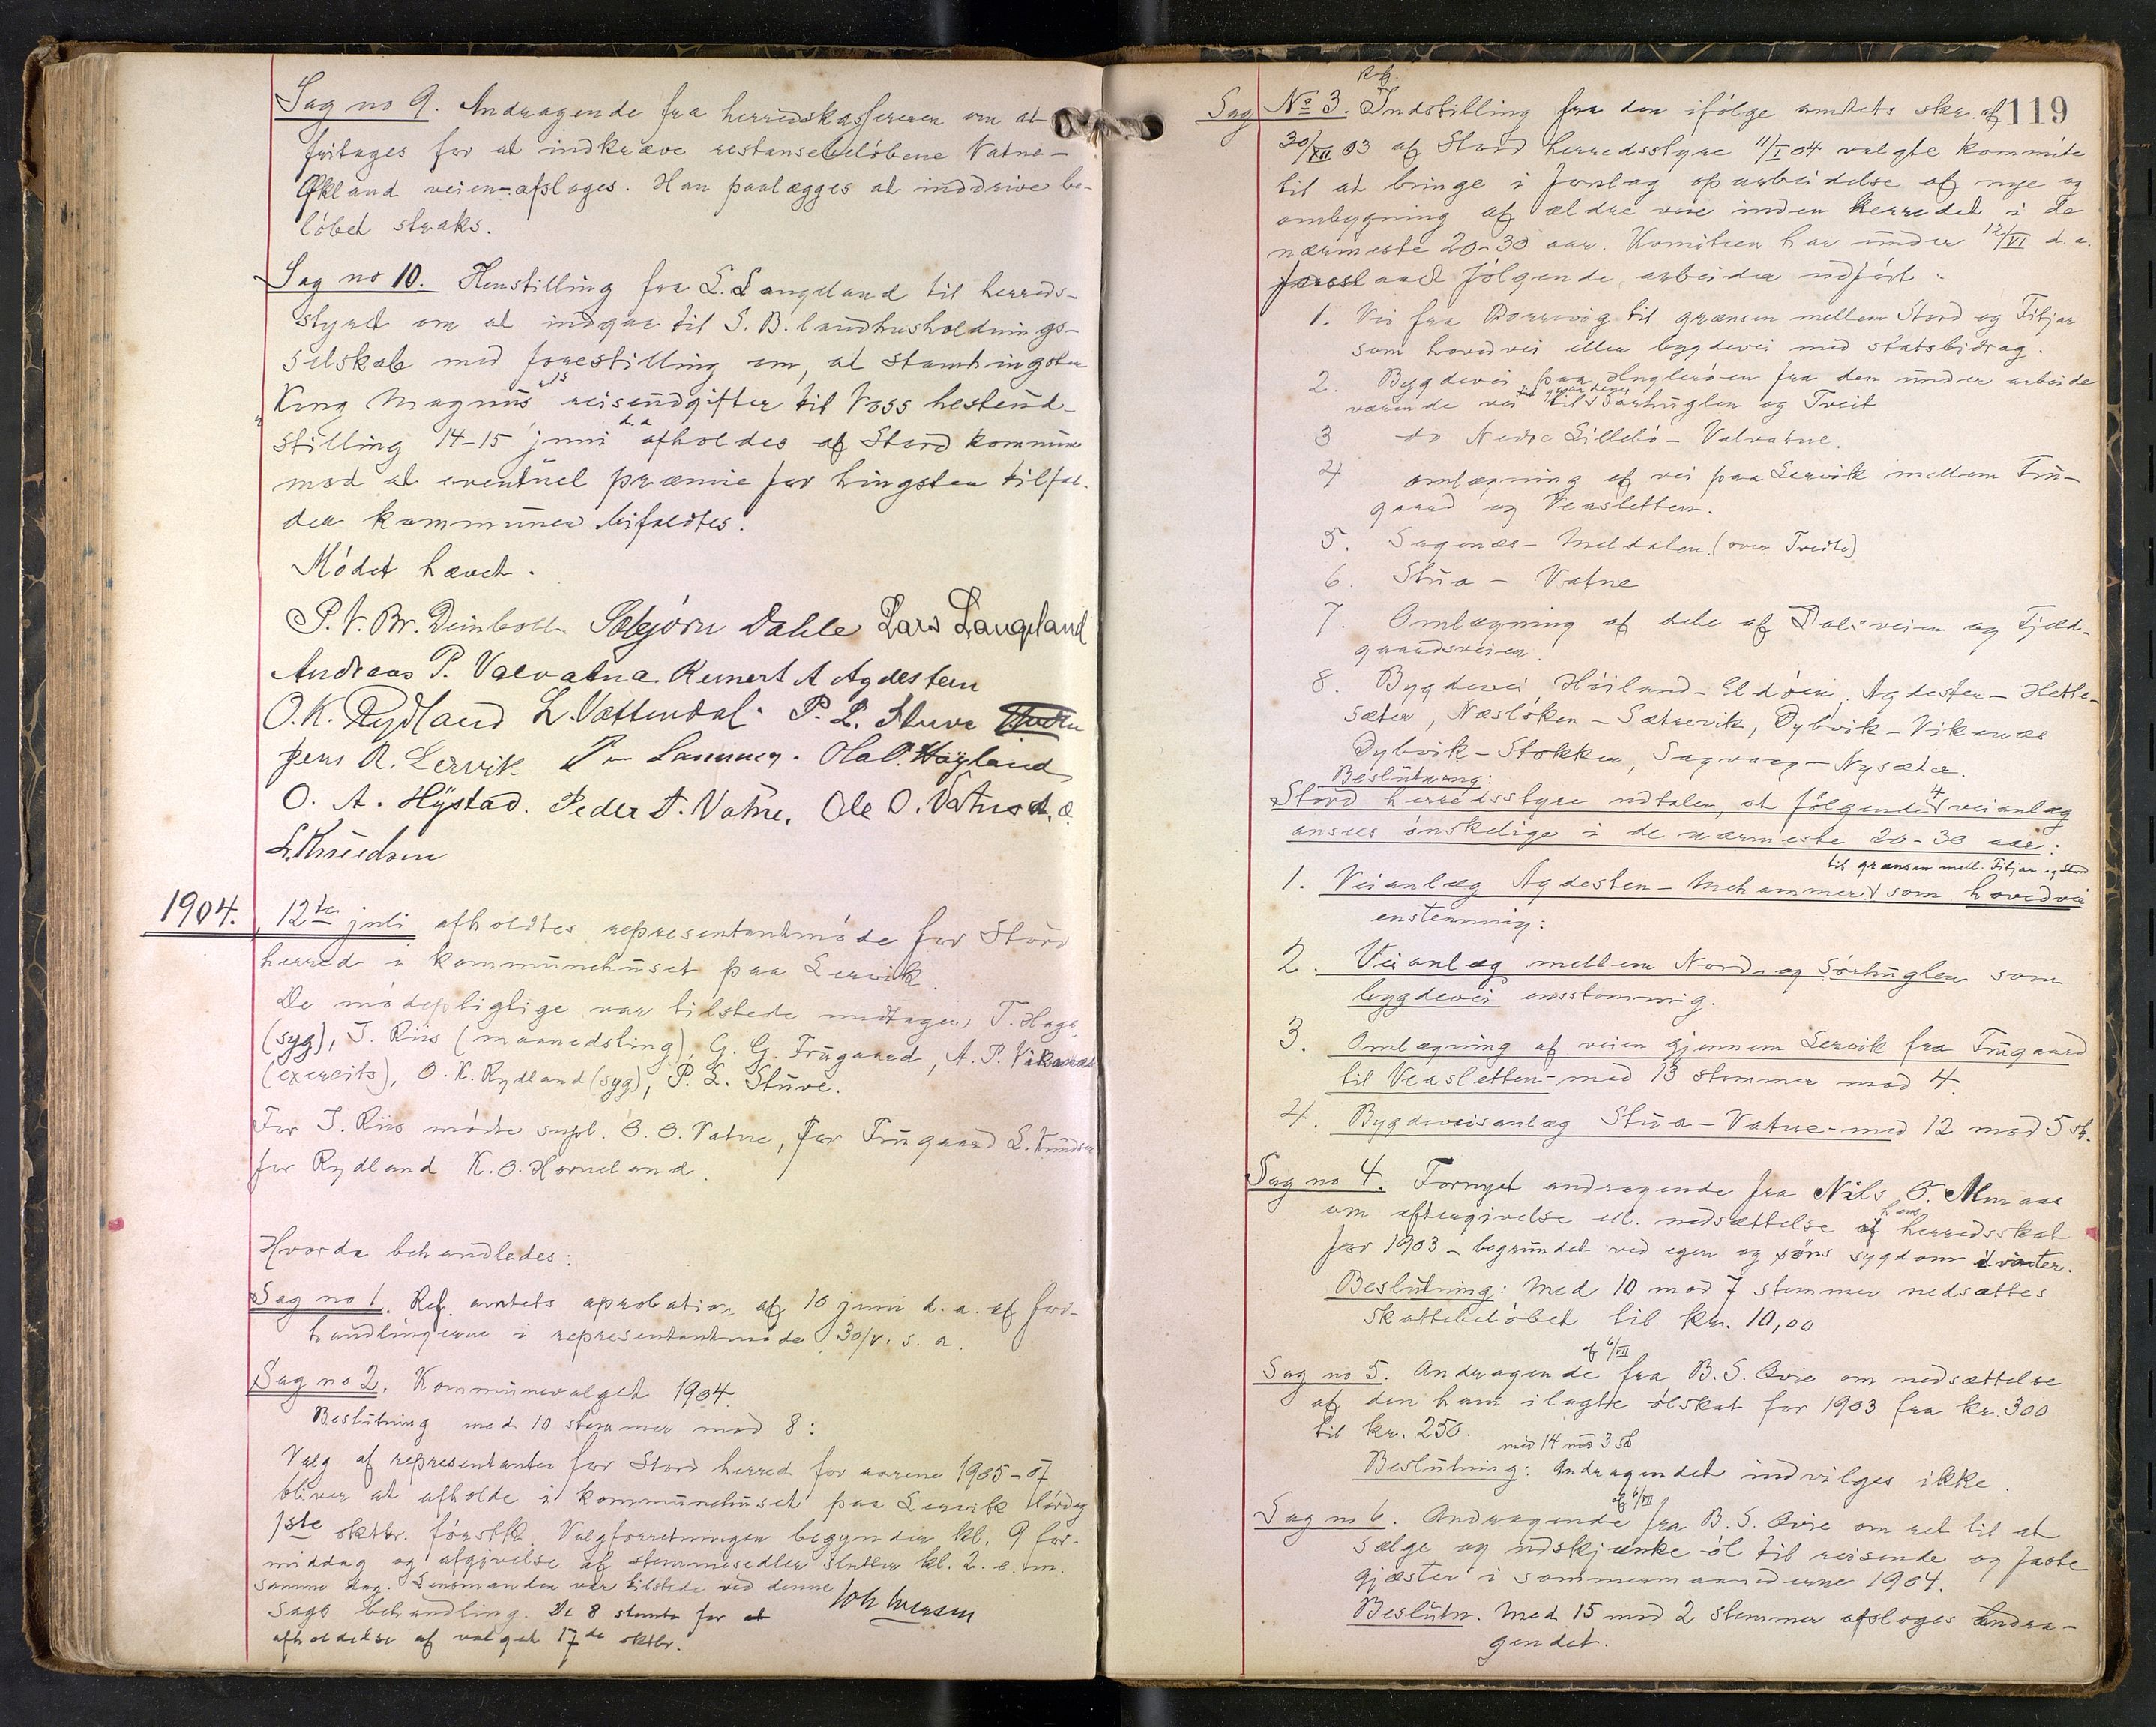 Sag no 9. Andragende fra herredskassereren om at
fritages for at indkræve restansebeløbene Vatne-
Økland veien - afslages. Han paalægges at inddrive be-
løbet straks.
Sag no 10. Henstilling fra L. Langeland til herreds-
styret om at indgaa til S. B. landhusholdnings-
selskab med forestilling om, at stamhingsten
King Magnus's reiseudgifter til Voss hestud-
stilling 14-15 juni d. a. afholdes af Stord kommune
mod at eventuel præmie for hingsten tilfal-
der kommunen bifaldtes.
Mødet hævet.
P. V. Br. Deinboll. Asbjørn Dahle Lars Langeland
Andreas P. Valvatna Reinert A Agdestein
O. K. Rydland L. Vattendal. P. L. Stuve
Jens R. Lervik Ola O. Høyland
O. A. Hystad. Peder T. Vatne. Ole O. Vatne d. æ.
L. Knudsen
1904. 12te juli afholdtes representantmøde for Stord
herred i kommunehuset paa Lervik.
De mødepligtige var tilstede undtagen T. Haga
(syg), J. Riis (maanedsling), G. G. Frugaard, A. P. Vikanæs
(exercits), O. K. Rydland (syg), P. L. Stuve.
For J. Riis mødte supl. O. O. Vatne, for Frugaard L. Knudsen
for Rydland K. O. Horneland.
Hvorda behandledes:
Sag no 1. Ref. amtets aprobation af 10 juni d. a. af for-
handlingerne i representantmøde 30/V. s. a.
Sag no 2. Kommunevalget 1904.
Beslutning med 10 stemmer mod 8:
Valg af representanter for Stord herred for aarene 1905-07
bliver at afholde i kommunehuset paa Lervik lørdag
1ste oktbr. førstk. Valgforretningen begynder kl. 9 for-
middag og afgivelse af stemmesedler slutter kl. 2. e. m.
samme dag. Lensmanden var tilstede ved denne
sags behandling. De 8 stemte for at Joh Iversen
afholdelse af valget 17de oktbr.
119
Rf.
Sag No 3. Indstilling fra den ifølge amtets skr. af
30/XII 03 af Stord herredsstyre 11/I 04 valgte kommite
til at bringe i forslag oparbeidelse af nye og
ombygning af ældre veie inden herredet i de
nærmeste 20-30 aar. Komiteen har under 12/VI d. a.
foreslaaet følgende arbeider udført:
1. Vei fra Rommevig til grænsen mellem Stord og Fitjar
som hovedvei eller bygdevei med statsbidrag.
2. Bygdevei paa Huglerøen fra den under arbeide
værende vei til gaardene Sørhuglen og Tveit
3 do Nedre Lillebø - Valvatne.
4 omlægning af vei paa Lervik mellem Fru-
gaard og Veasletten.
5. Sagenæs - Meldalen (over Tveite)
6. Stua - Vatne
7. Omlægning af dele af Dalsveien og Fjeld-
gaardsveien.
8. Bygdevei Høiland - Eldøen, Agdesten - Hette-
sæter, Næsløken - Sætrevik, Dybvik - Vikanæs
Dybvik - Stokken, Sagvaag - Nysæter.
Beslutning:
Stord herredsstyre udtaler, at følgende 4 veianlæg
ansees ønskelige i de nærmeste 20-30 aar:
til grænsen mell. Fitjar og Stord
1. Veianlæg Agdesten - Mehammer som hovedvei
enstemmig:
2. Veianlæg mellem Nord- og Sørhuglen som
bygdevei ensstemmig.
3. Omlægning af veien gjennem Lervik fra Frugaard
til Veasletten - med 13 stemmer mod 4.
4. Bygdeveisanlæg Stua - Vatne - med 12 mod 5 st.
Sag no 4. Fornyet andragende fra Nils O. Almaas
om eftergivelse ell. nedsættelse af hans herredsskat
for 1903 - begrundet ved egen og søns sygdom i vinter.
Beslutning: Med 10 mod 7 stemmer nedsættes
skattebeløbet til kr. 10,00
af 6/VII
Sag no 5. Andragende fra B. S. Øvre om nedsættelse
af den ham ilagte ølskat for 1903 fra kr. 300
til kr. 250.
med 14 mod 3 st
Beslutning: Andragendet indvilges ikke.
af 6/VII
Sag no 6. Andragende fra B. S. Øvre om ret til at
sælge og udskjænke øl til reisende og faste
gjæster i sommermaanederne 1904.
Beslutn. Med 15 mod 2 stemmer afslages andra-
gendet.